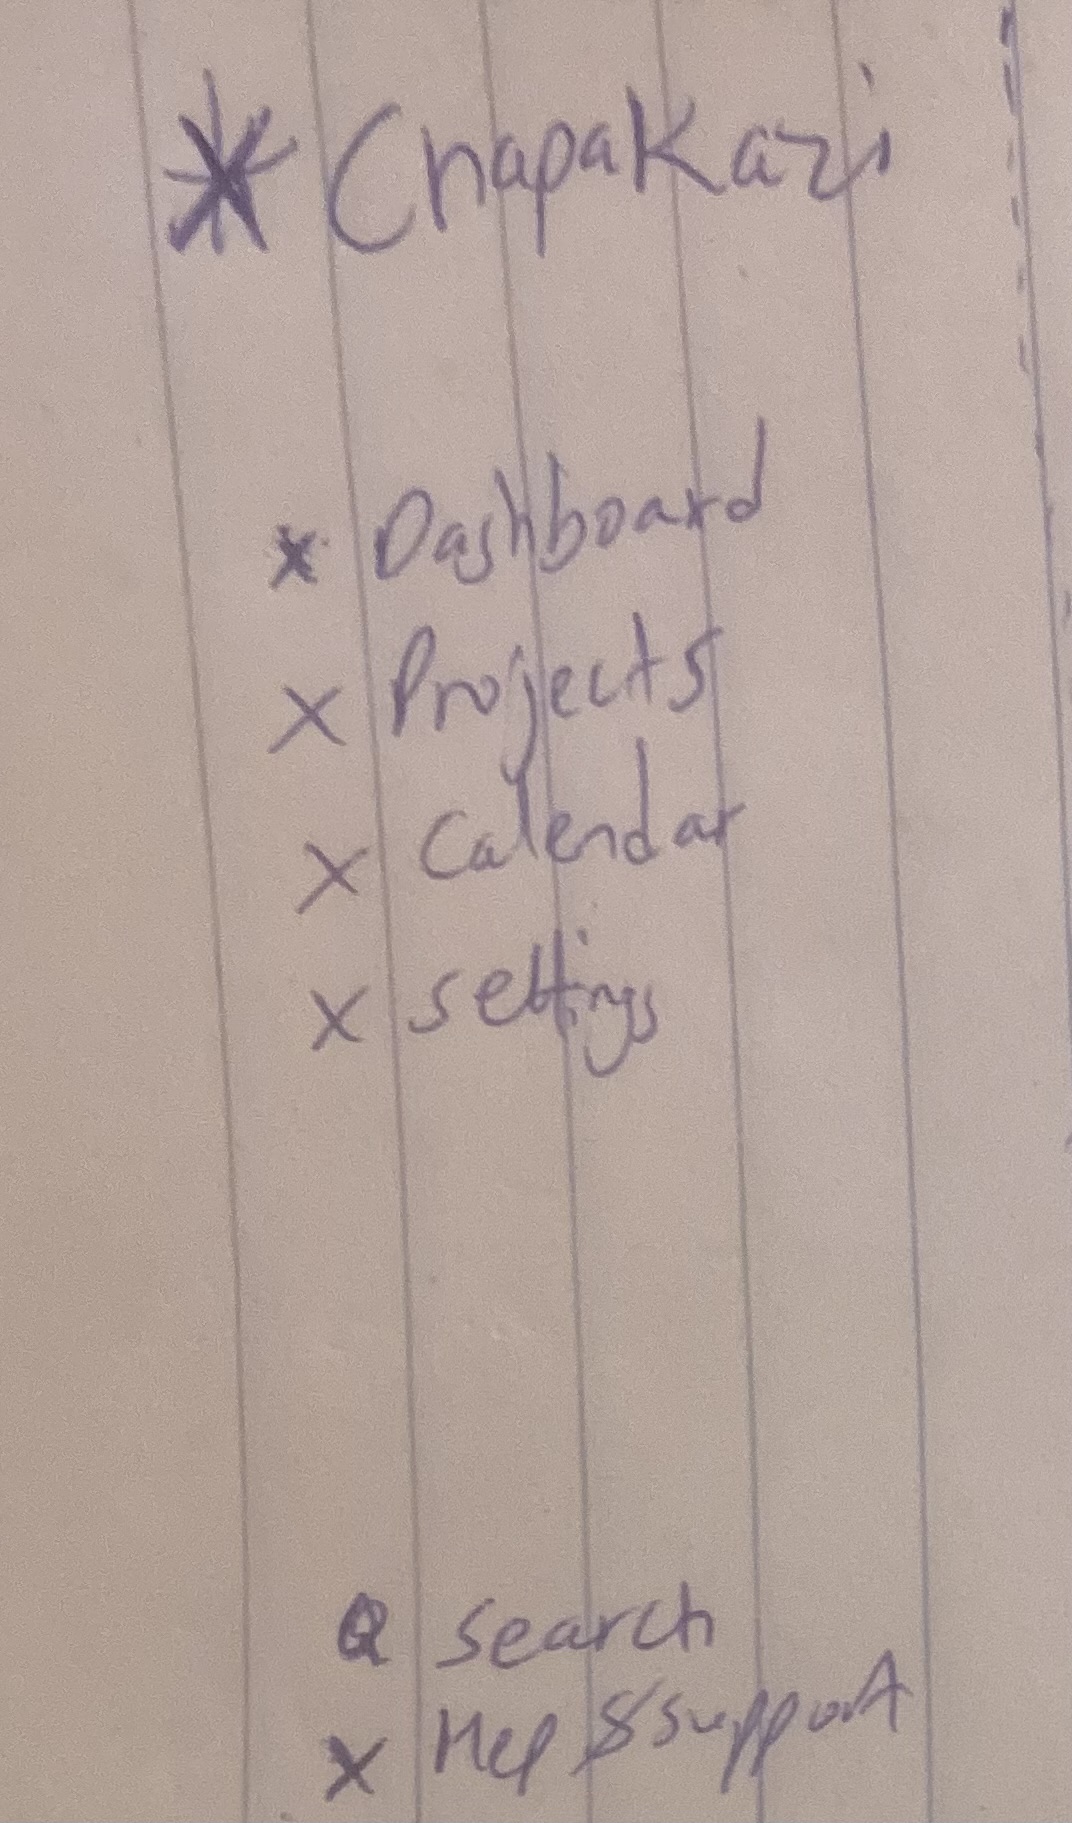 * ChapaKazi
x Dashboard
x Projects
x Calendar
x settings
Q search
x Help & support